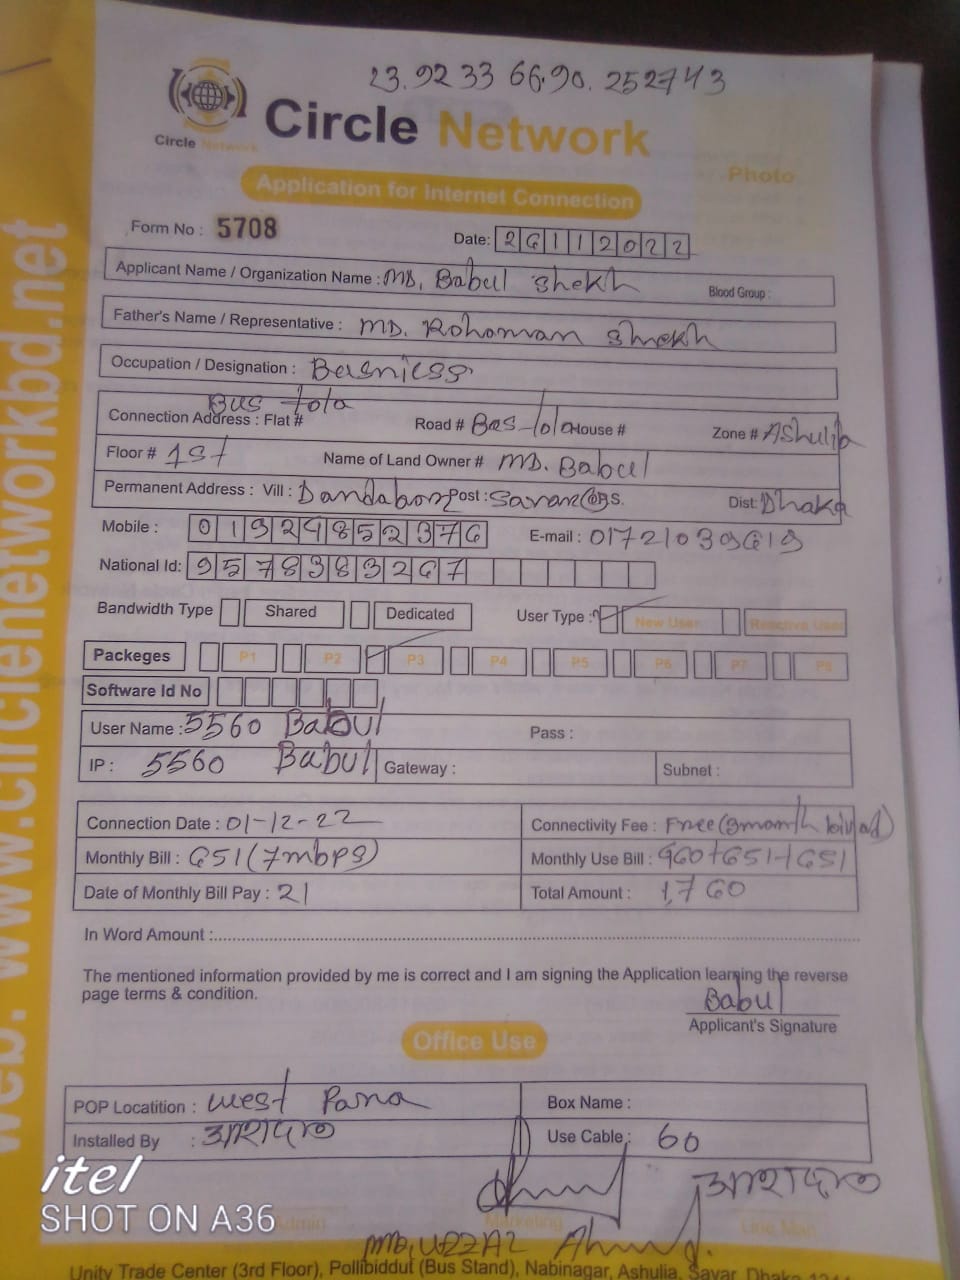 23.92 33 66.90. 252743
Circle Network
Circle Network
Photo
Application for Internet Connection
Form No : 5708
Date: 26112022
Applicant Name / Organization Name : MD. Babul Shekh Blood Group :
Father's Name / Representative : MD. Rohoman Shekh
Occupation / Designation : Basnicss
Bus tola
Connection Address : Flat # Road # Bas tola House # Zone # Ashulia
Floor # 1st Name of Land Owner # MD. Babul
Permanent Address : Vill : Post : Savar P.S. Dist: Dhaka
Mobile : 01924852376 E-mail : 01721039619
National Id: 9578383267
Bandwidth Type Shared Dedicated User Type : New User Reactive User
Packeges P1 P2 P3 P4 P5 P6 P7 P8
Software Id No
User Name : 5560 Babul Pass :
IP : 5560 Babul Gateway : Subnet :
Connection Date : 01-12-22 Connectivity Fee : Free (3 month
Monthly Bill : 651 (7mbps) Monthly Use Bill : 460+651+651
Date of Monthly Bill Pay : 21 Total Amount : 1,760
In Word Amount :
The mentioned information provided by me is correct and I am signing the Application learning the reverse
page terms & condition.
Babul
Applicant's Signature
Office Use
POP Locatition : West Para Box Name :
Installed By : Use Cable : 60
Admin Marketing Line Man
MD. UZZAL Ahmed.
Unity Trade Center (3rd Floor), Pollibiddut (Bus Stand), Nabinagar, Ashulia, Savar, Dhaka
web: www.circlenetworkbd.net
itel
SHOT ON A36